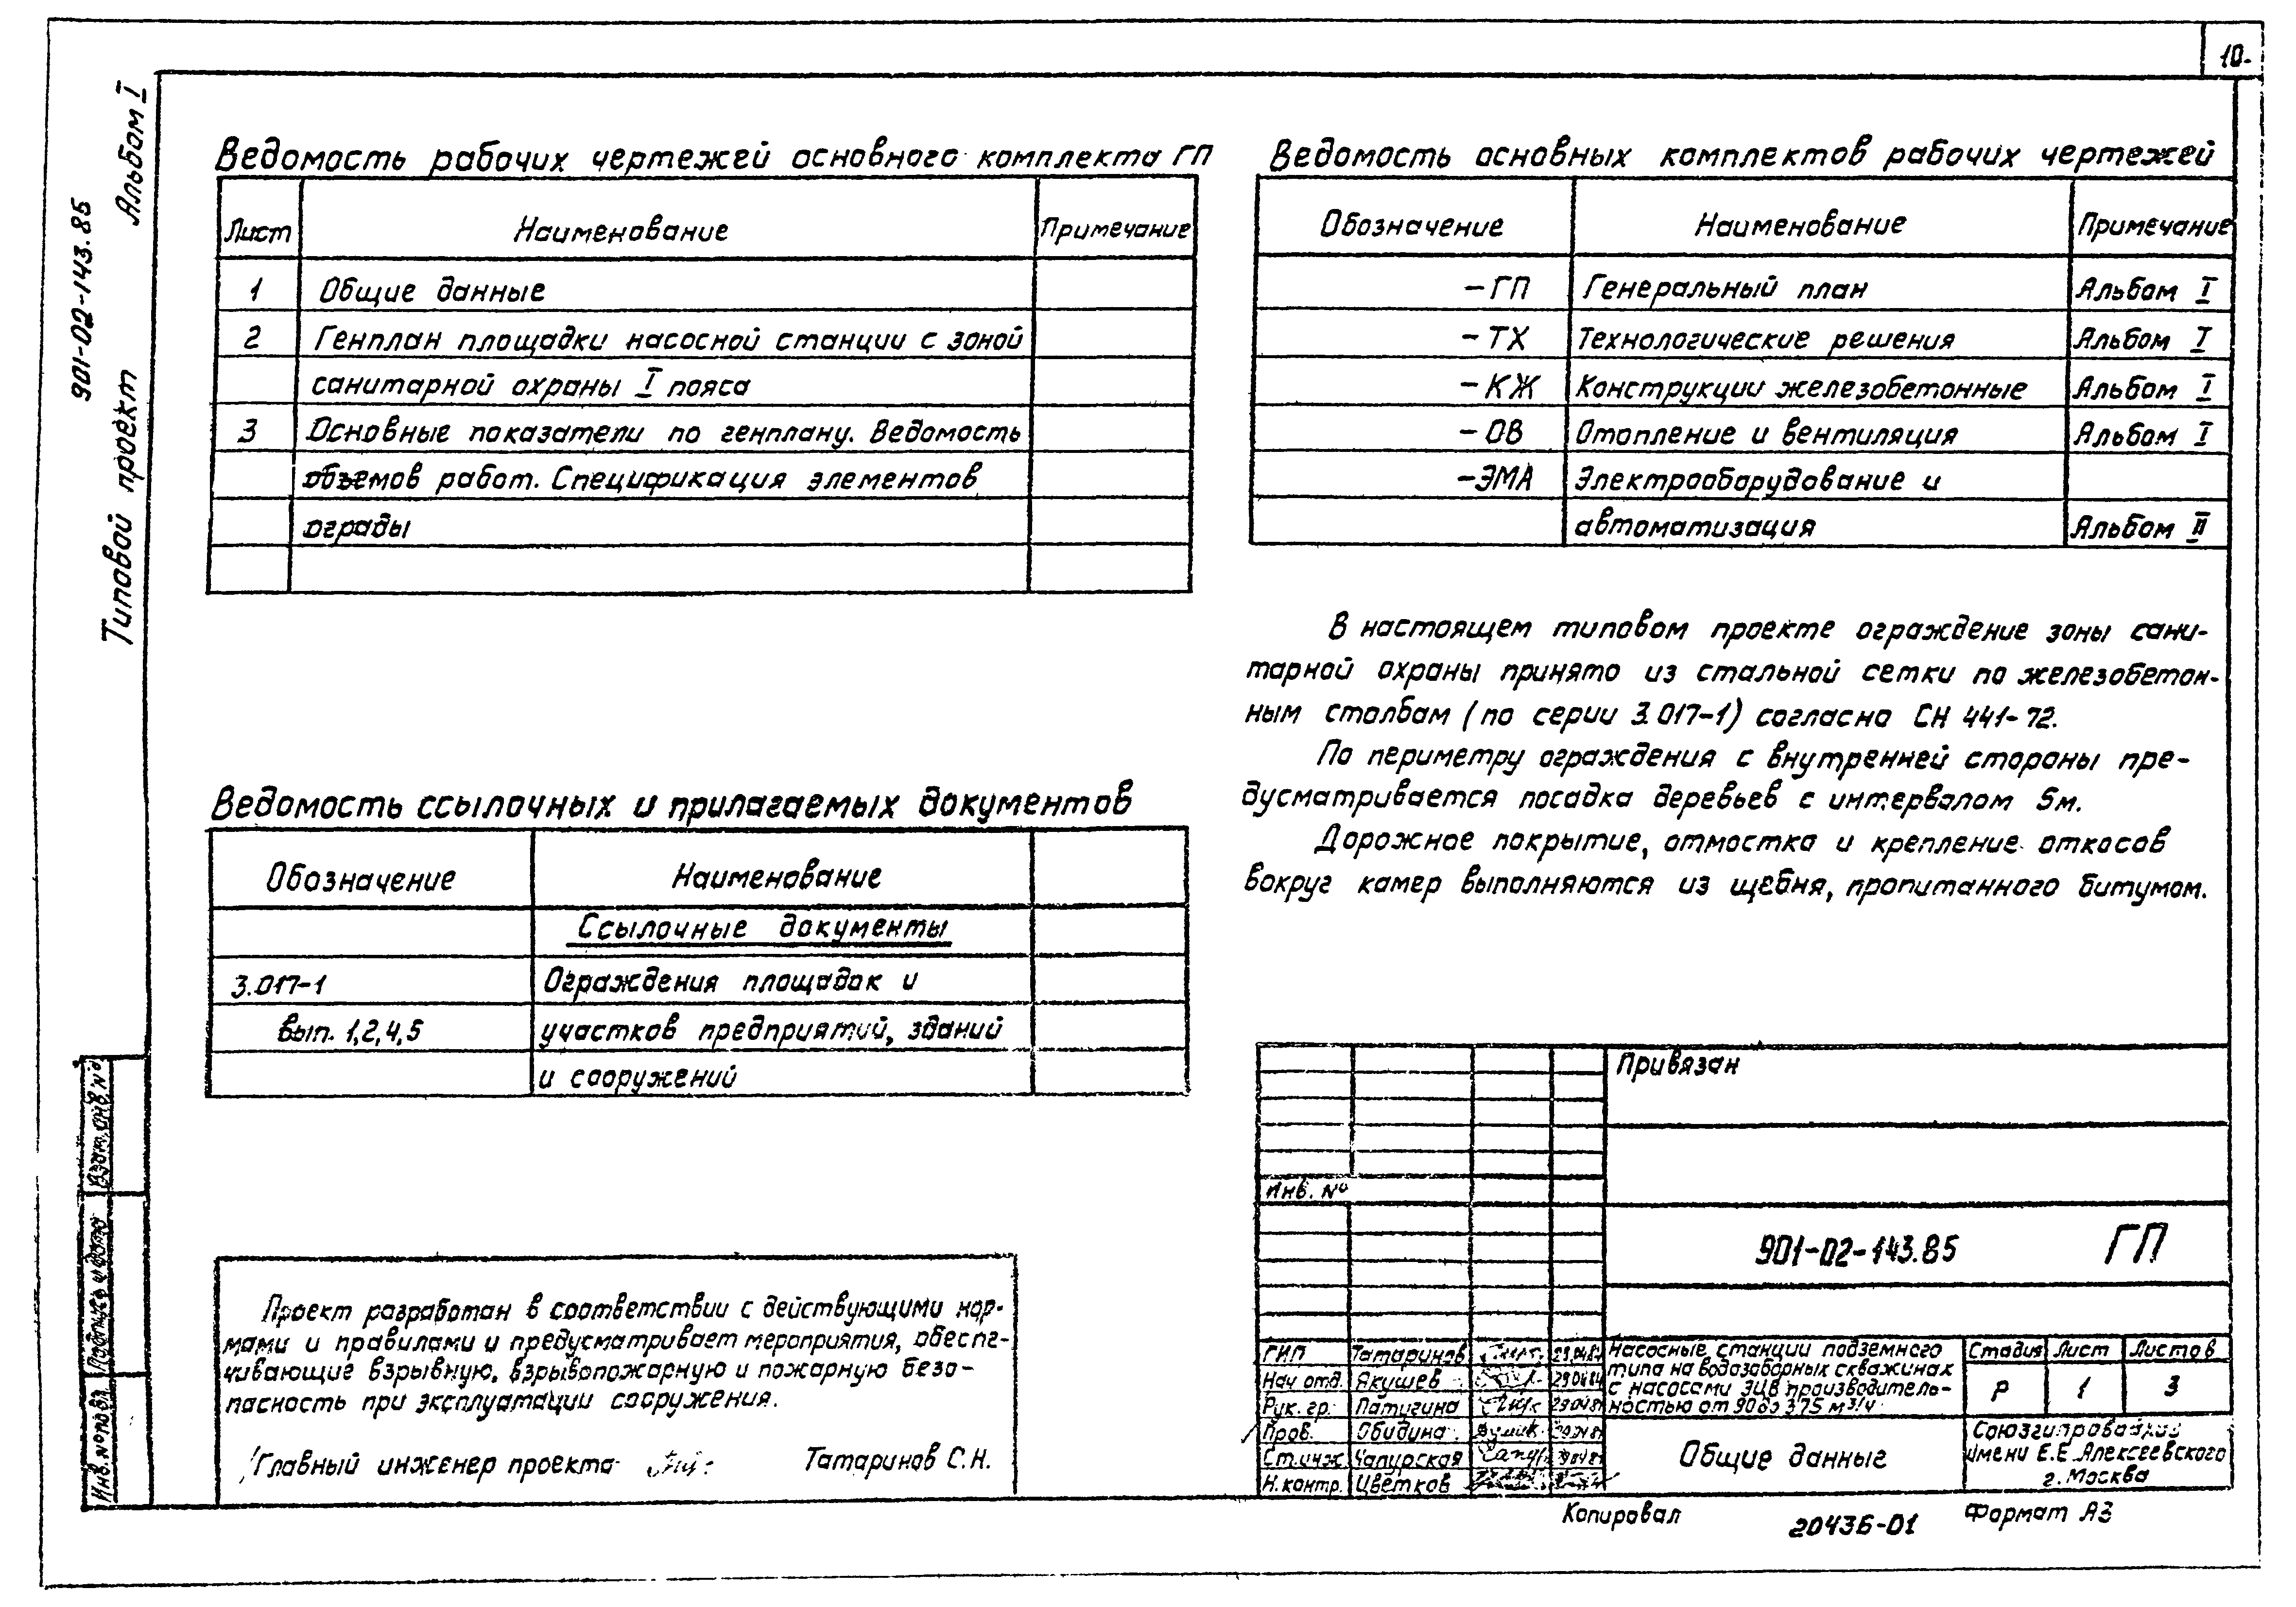 10.
Типовой проект 901-02-143.85 Альбом I
Ведомость рабочих чертежей основного комплекта ГП
Лист Наименование Примечание
1 Общие данные
2 Генплан площадки насосной станции с зоной
санитарной охраны I пояса
3 Основные показатели по генплану. Ведомость
объемов работ. Спецификация элементов
ограды
Ведомость основных комплектов рабочих чертежей
Обозначение Наименование Примечание
-ГП Генеральный план Альбом I
-ТХ Технологические решения Альбом I
-КЖ Конструкции железобетонные Альбом I
-ОВ Отопление и вентиляция Альбом I
-ЭМА Электрооборудование и
автоматизация Альбом II
В настоящем типовом проекте ограждение зоны сани-
тарной охраны принято из стальной сетки по железобетон-
ным столбам (по серии 3.017-1) согласно СН 441-72.
По периметру ограждения с внутренней стороны пре-
дусматривается посадка деревьев с интервалом 5м.
Дорожное покрытие, отмостка и крепление откосов
вокруг камер выполняются из щебня, пропитанного битумом.
Ведомость ссылочных и прилагаемых документов
Обозначение Наименование
Ссылочные документы
3.017-1 Ограждения площадок и
вып. 1,2,4,5 участков предприятий, зданий
и сооружений
Проект разработан в соответствии с действующими нор-
мами и правилами и предусматривает мероприятия, обеспе-
чивающие взрывную, взрывопожарную и пожарную безо-
пасность при эксплуатации сооружения.
Главный инженер проекта Татаринов С.Н.
Взам. инв. №
Подпись и дата
Инв. № подл.
Привязан
Инв. №
901-02-143.85 ГП
ГИП Татаринов 29.04.84
Нач отд. Якушев 29.04.84
Рук. гр. Патугина 29.04.84
Пров. Обидина
Ст.инж. Чапурская
Н.контр. Цветков
Насосные станции подземного
типа на водозаборных скважинах
с насосами ЭЦВ производитель-
ностью от 90 до 375 м³/ч
Стадия Лист Листов
Р 1 3
Общие данные
Союзгипроводхоз
имени Е.Е.Алексеевского
г. Москва
Копировал 20436-01 Формат А3